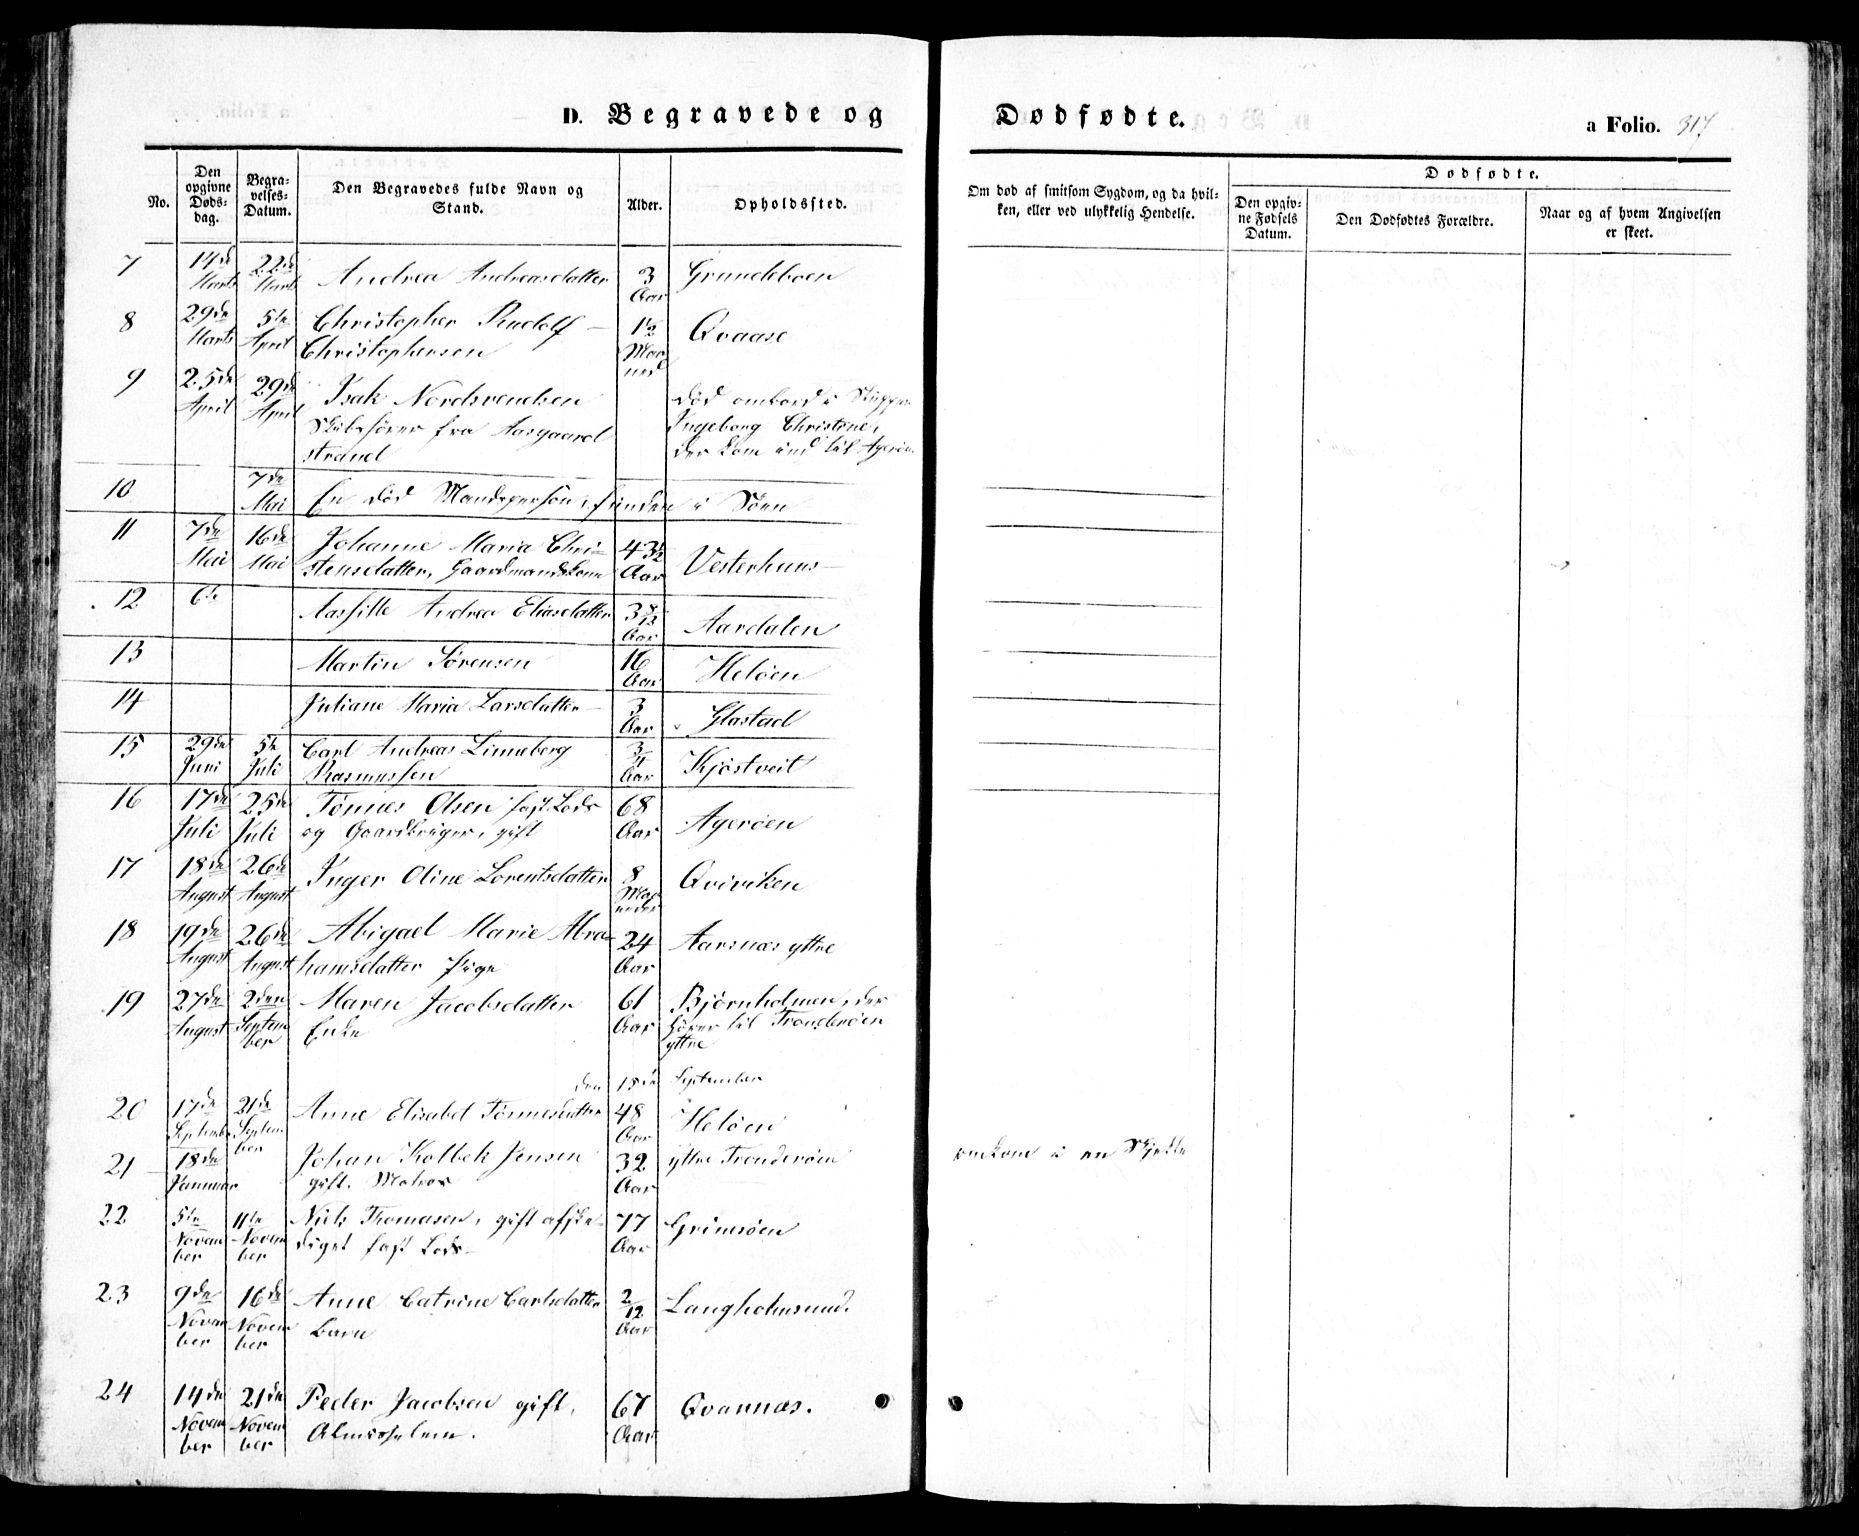 D. Begravede og Dødfødte.
a Folio. 317
No.
Den opgivne Døds-dag.
Begra-velses-Datum.
Den Begravedes fulde Navn og Stand.
Alder.
Opholdssted.
Om død af smitsom Sygdom, og da hvil-
ken, eller ved ulykkelig Hendelse.
Dødfødte.
Den opgiv-ne Fødsels Datum.
Den Dødfødtes Forældre.
Naar og af hvem Angivelsen er skeet.
7 14de Marts 22de Marts Andrea Andreasdatter 3 Aar Grundeboen
8 29de Marts 5te April Christopher Rudolf
Christophersen 1½ Maaned Qvaase
9 25de April 29de April Isak Nordsvendsen
Skibsfører fra Aasgaard
strand
død ombord i
Ingeborg Christine,
der kom ind til Agerøen
10 7de Mai En død Mandsperson, funden i Søen
11 7de Mai 16de Mai Johanne Maria Chri-
stensdatter, Gaardmandskone 43½ Aar Vesterhuus
12 6te Aasille Andrea Eliasdatter 3 8/12 Aar Aardalen
13 Martin Sørensen 16 Aar Heløen
14 Juliane Maria Larsdatter 3 Aar Glastad
15 29de Juni 5te Juli Carl Andreas Linneberg
Rasmussen 3/4 Aar Kjøstveit
16 17de Juli 25de Juli Tønnes Olsen fast Lods
og Gaardbruger, gift 68 Aar Agerøen
17 18de August 26de August Inger Oline Lorentsdatter 8 Maaneder Qviviken
18 19de August 26de August Abigael Marie Abra-
hamsdatter Pige 24 Aar Aarsnæs yttre
19 27de August 2den September Maren Jacobsdatter
Enke 61 Aar Bjørnholmen, der
hører til Tronderøen
yttre
den 18de September
20 17de September 21de September Anne Elisabet Tønnesdatter 48 Aar Heløen
21 18de Januar Johan Kolbek Jensen
gift. Matros 32 Aar yttre Tronderøen omkom i en Skjøtte
22 5te November 11te November Niels Thomasen, gift afske-
diget fast Lods 77 Aar Grimsøen
23 9de November 16de November Anne Catrine Carlsdatter
Barn 2/12 Aar Langholmsund.
24 14de November 21de November Peder Jacobsen gift,
Almisselem. 67 Aar Qvannæs.